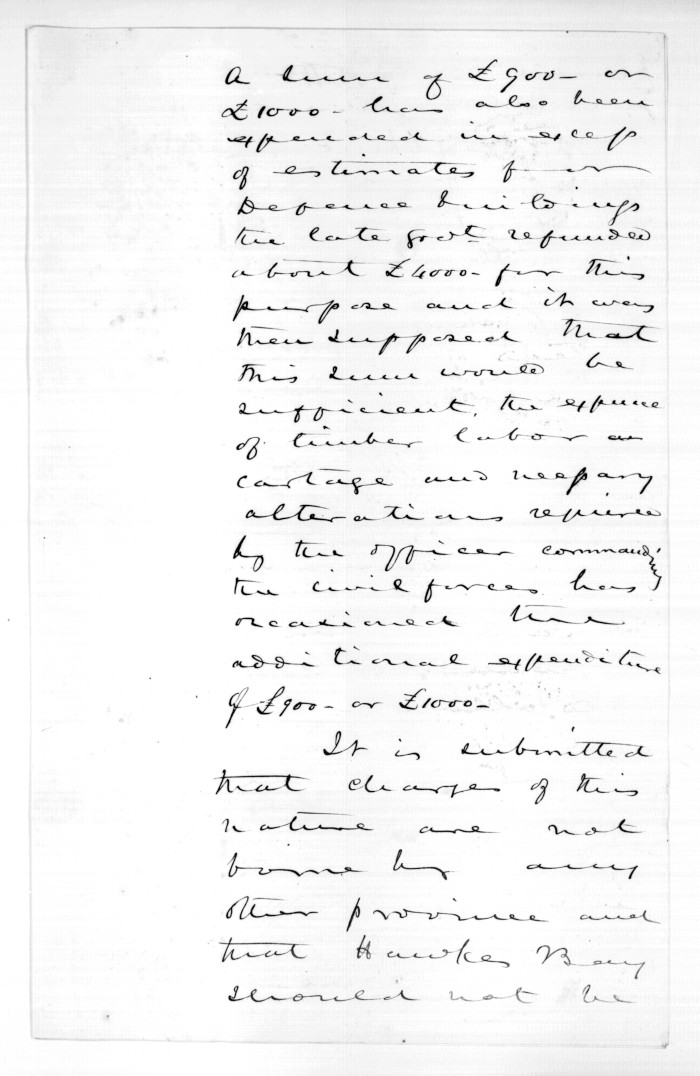 A sum of £900 - or
£1000 - has also been
expended in excess
of estimates for
Defence buildings
the late Govt. refunded
about £4000 - for this
purpose and it was
then supposed that
this sum would be
sufficient, the expense
of timber labor
cartage and necessary
alterations required
by the officer commanding
the civil forces has
occasioned the
additional expenditure
of £900 - or £1000 -
It is submitted
that charges of this
nature are not
borne by any
other province and
that Hawkes Bay
should not be